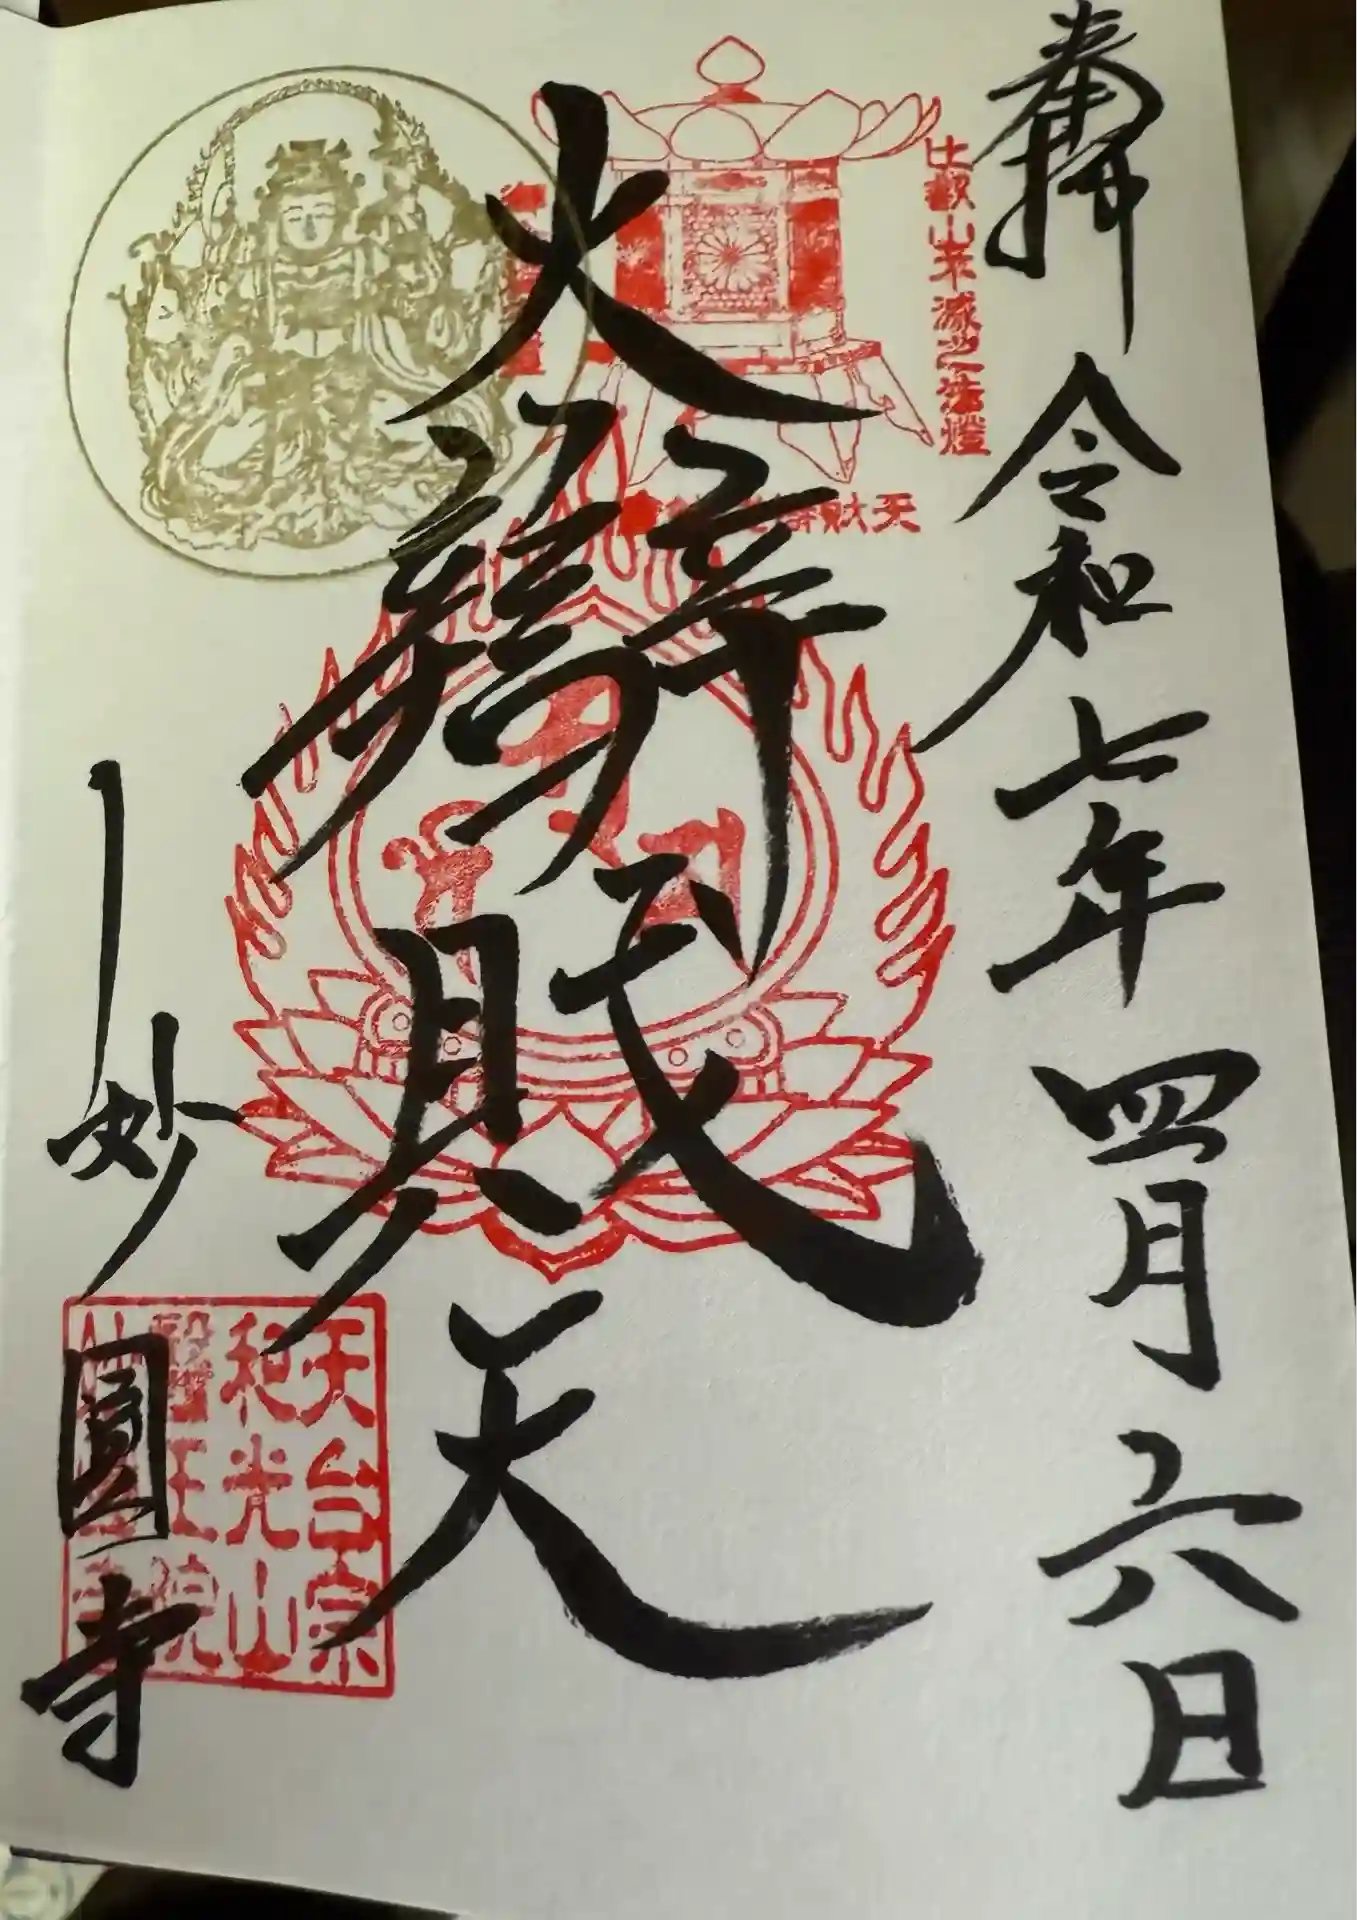 奉拝
令和七年四月六日
比叡山不滅之法燈
大辯財天
妙圓寺
天台宗
和光山
醫王院